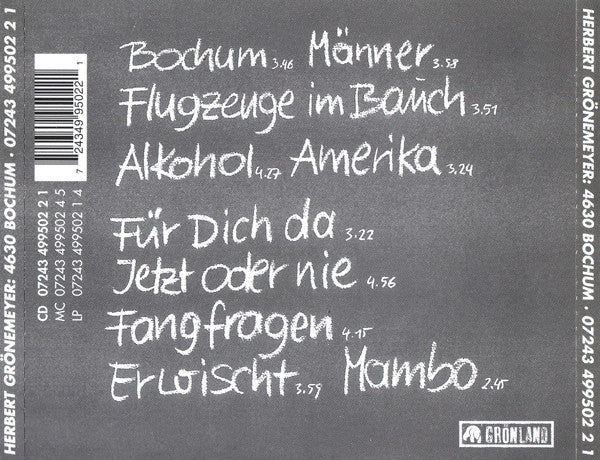 HERBERT GRÖNEMEYER: 4630 BOCHUM · 07243 499502 2 1
7 24349 95022 1
CD 07243 499502 2 1
MC 07243 499502 4 5
LP 07243 499502 1 4
Bochum 3.46 Männer 3.58
Flugzeuge im Bauch 3.51
Alkohol 4.27 Amerika 3.24
Für Dich da 3.22
Jetzt oder nie 4.56
Fangfragen 4.15
Erwischt 3.59 Mambo 2.45
GRÖNLAND
HERBERT GRÖNEMEYER: 4630 BOCHUM · 07243 499502 2 1